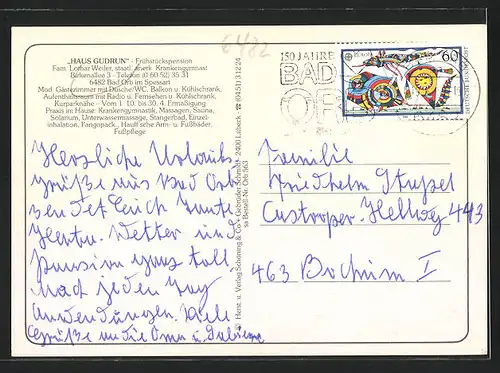 6482
„HAUS GUDRUN" - Frühstückspension
Fam. Lothar Weder, staatl. anerk. Krankengymnast
Birkenallee 3 - Telefon (0 60 52) 35 31
6482 Bad Orb im Spessart
Mod. Gästezimmer mit Dusche/WC, Balkon u. Kühlschrank,
Aufenthaltsraum mit Radio u. Fernseher u. Kühlschrank,
Kurparknähe - Vom 1. 10. bis 30. 4. Ermäßigung
Praxis im Hause: Krankengymnastik, Massagen, Sauna,
Solarium, Unterwassermassage, Stangerbad, Einzel-
inhalation, Fangopack., Hauff'sche Arm- u. Fußbäder,
Fußpflege
Herzliche Urlaubs
grüße aus Bad Orb
sendet Euch
Wetter und
Pension ganz toll
jeden Tag
Anwendungen. Viele
Grüße an die Oma u.
Herst. u. Verlag Schöning & Co + Gebrüder Schmidt - 2400 Lübeck
Bestell-Nr. Orb 563
150 JAHRE
BAD
ORB
EUROPA
60
Familie
Friedhelm Strypel
Castroper-Hellweg 443
463 Bochum I